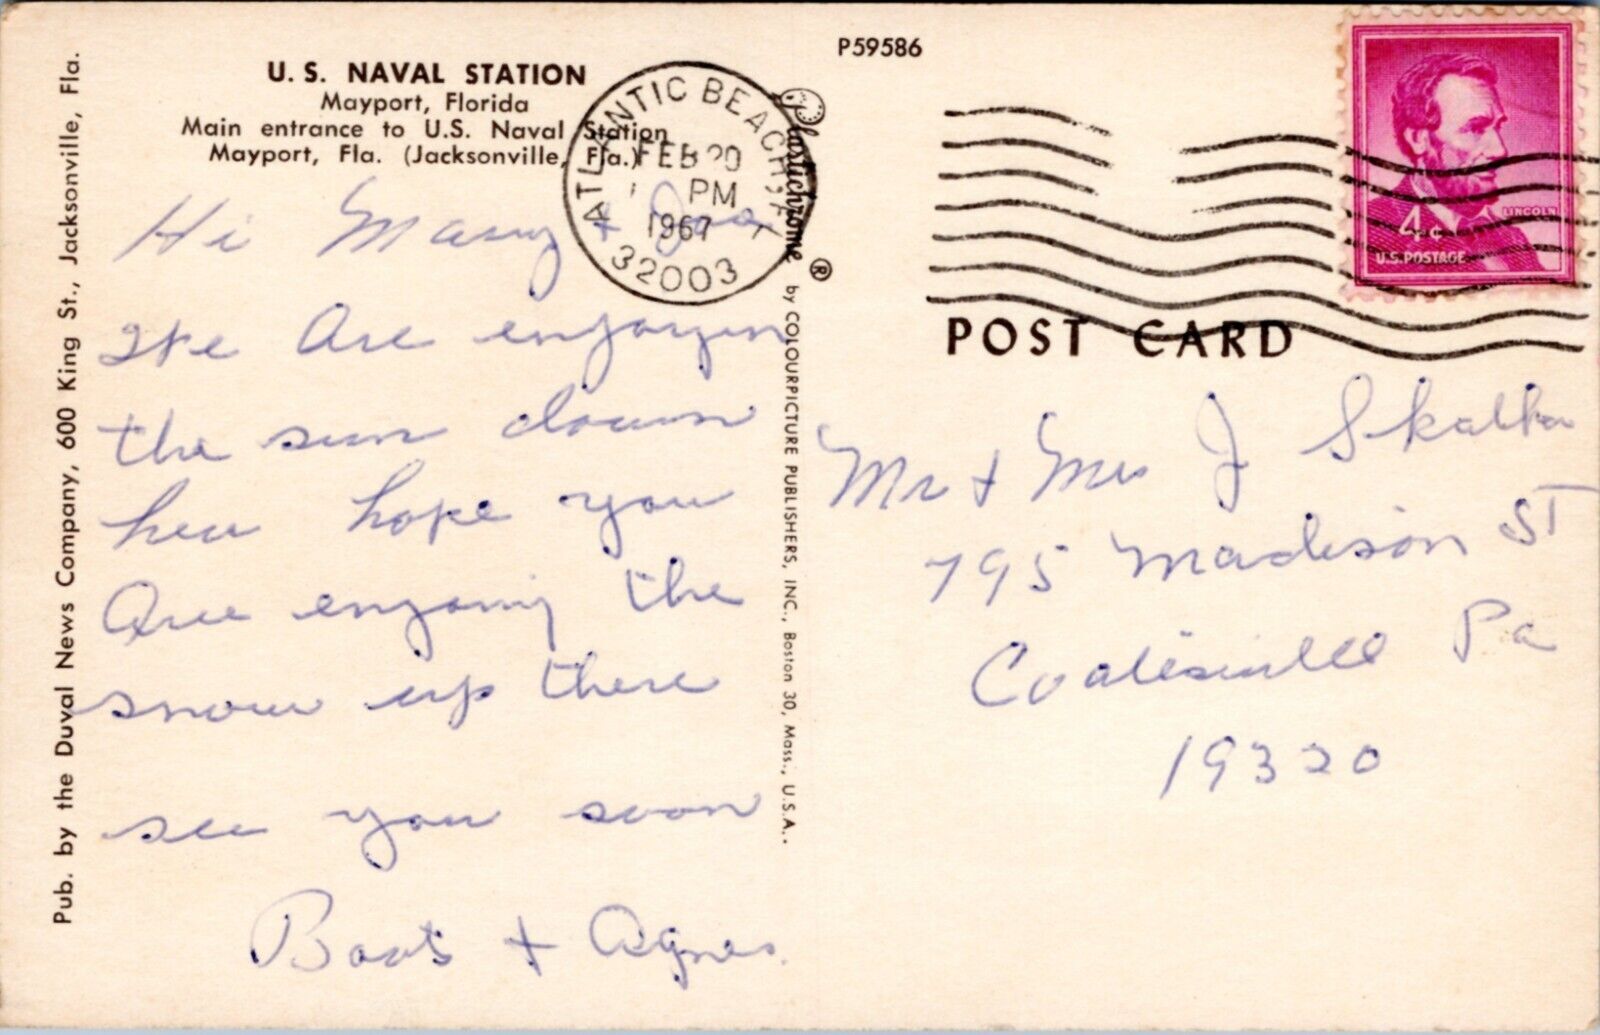 P59586
U. S. NAVAL STATION
Mayport, Florida
Main entrance to U.S. Naval Station
Mayport, Fla. (Jacksonville, Fla.)
ATLANTIC BEACH, FLA
FEB 20
PM
1967
32003
4¢
LINCOLN
U.S. POSTAGE
POST CARD
Plastichrome ® by COLOURPICTURE PUBLISHERS, INC., Boston 30, Mass., U.S.A.
Pub. by the Duval News Company, 600 King St., Jacksonville, Fla.
Hi Mary + Joe
We Are enjoyin
the sun down
here hope you
Are enjoing the
snow up there
see you soon
Boots + Agnes
Mr + Mrs J Skalka
795 Madison ST
Coatesville Pa
19320